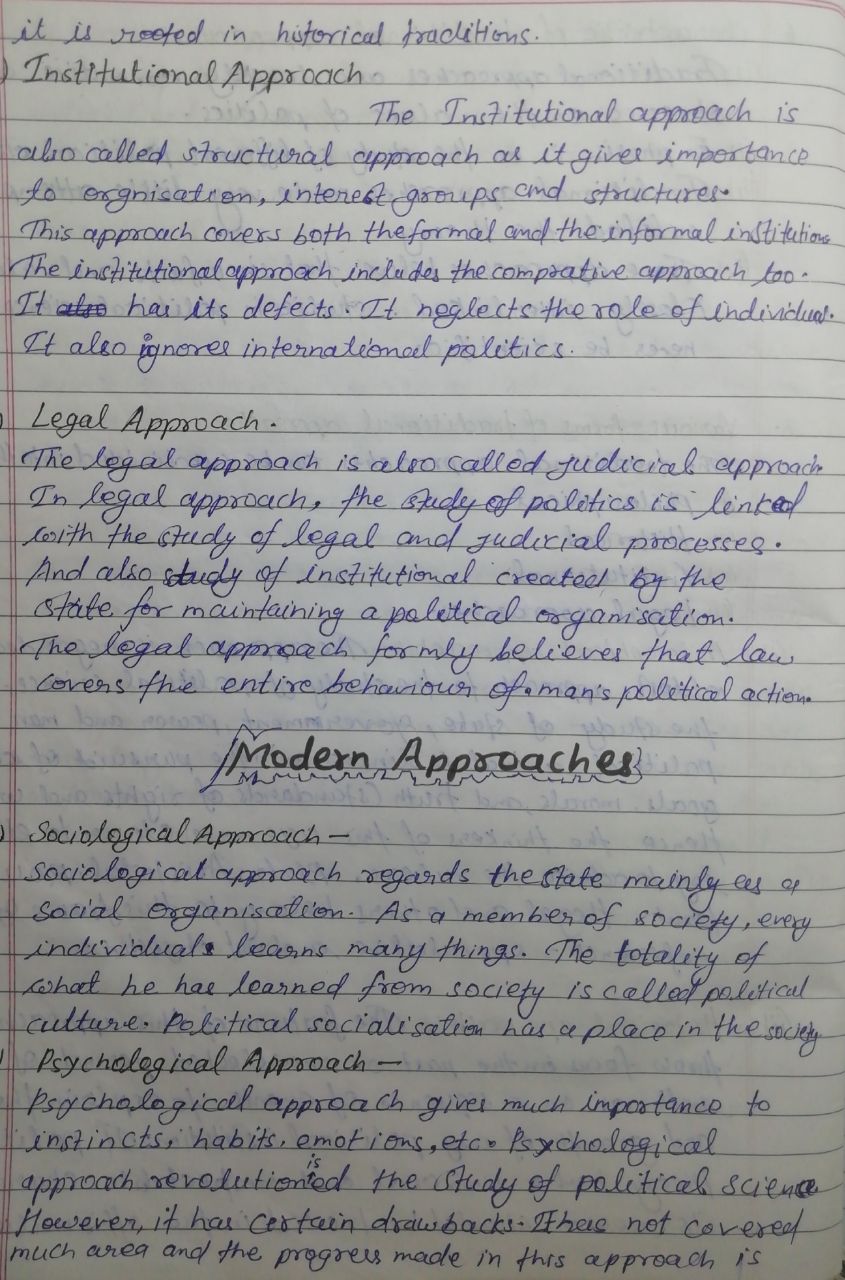 it is rooted in historical traditions.
) Institutional Approach
The Institutional approach is
also called structural approach as it gives importance
to orgnisation, interest groups and structures.
This approach covers both the formal and the informal institutions
The institutional approach includes the comprative approach too.
It also has its defects. It neglects the role of individual.
It also ignores international politics.
) Legal Approach.
The legal approach is also called judicial approach
In legal approach, the study of politics is linked
with the study of legal and judicial processes.
And also study of institutional created by the
state for maintaining a political organisation.
The legal approach formly believes that law
covers the entire behaviour of man's political action.
Modern Approaches
) Sociological Approach —
Sociological approach regards the state mainly as a
social organisation. As a member of society, every
individuals learns many things. The totality of
what he has learned from society is called political
culture. Political socialisation has a place in the society
) Psychological Approach —
Psychological approach gives much importance to
instincts, habits, emotions, etc. Psychological
approach revolutionised the study of political science
However, it has certain drawbacks. It has not covered
much area and the progress made in this approach is